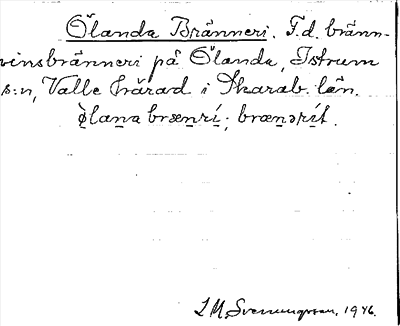 Ölanda Bränneri. F.d. bränn-
vinsbränneri på Ölanda, Istrum
s:n, Valle härad i Skarab. län.
ø̀lana brænrí; brænərít.
L M, Svenungsson, 1946.